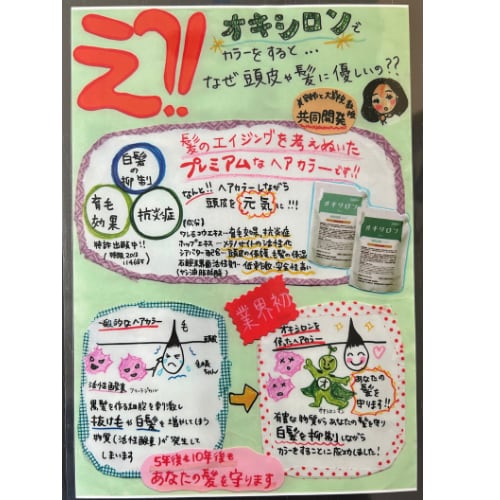 え?!!
オキシロンで
カラーをすると…
なぜ頭皮や髪に優しいの??
共同開発
髪のエイジングを考えぬいた
プレミアムなヘアカラーです!!
白髪の
抑制
育毛
効果
抗炎症
特許出願中!!
なんと!! ヘアカラーしながら
頭皮を元気に!!!
(成分)
クレミコウエキス…育毛効果、抗炎症
ホップエキス…メラノサイトの活性化
シアバター配合…頭皮の保護、毛髪の保湿
低刺激、安全性高い
(ヤシ油脂肪酸)
オキシロン
オキシロン
業界初
一般的なヘアカラー
毛
頭皮
活性酸素 フリーラジカル
黒髪を作る細胞を刺激し
抜け毛や白髪を増やしてしまう
物質(活性酸素)が発生して
しまいます
オキシロンを
使ったヘアカラー
あなたの
髪を
守ります!!
有害な物質からあなたの髪を守り
白髪を抑制しながら
カラーをすることに成功しました!
5年後も10年後も
あなたの髪を守ります